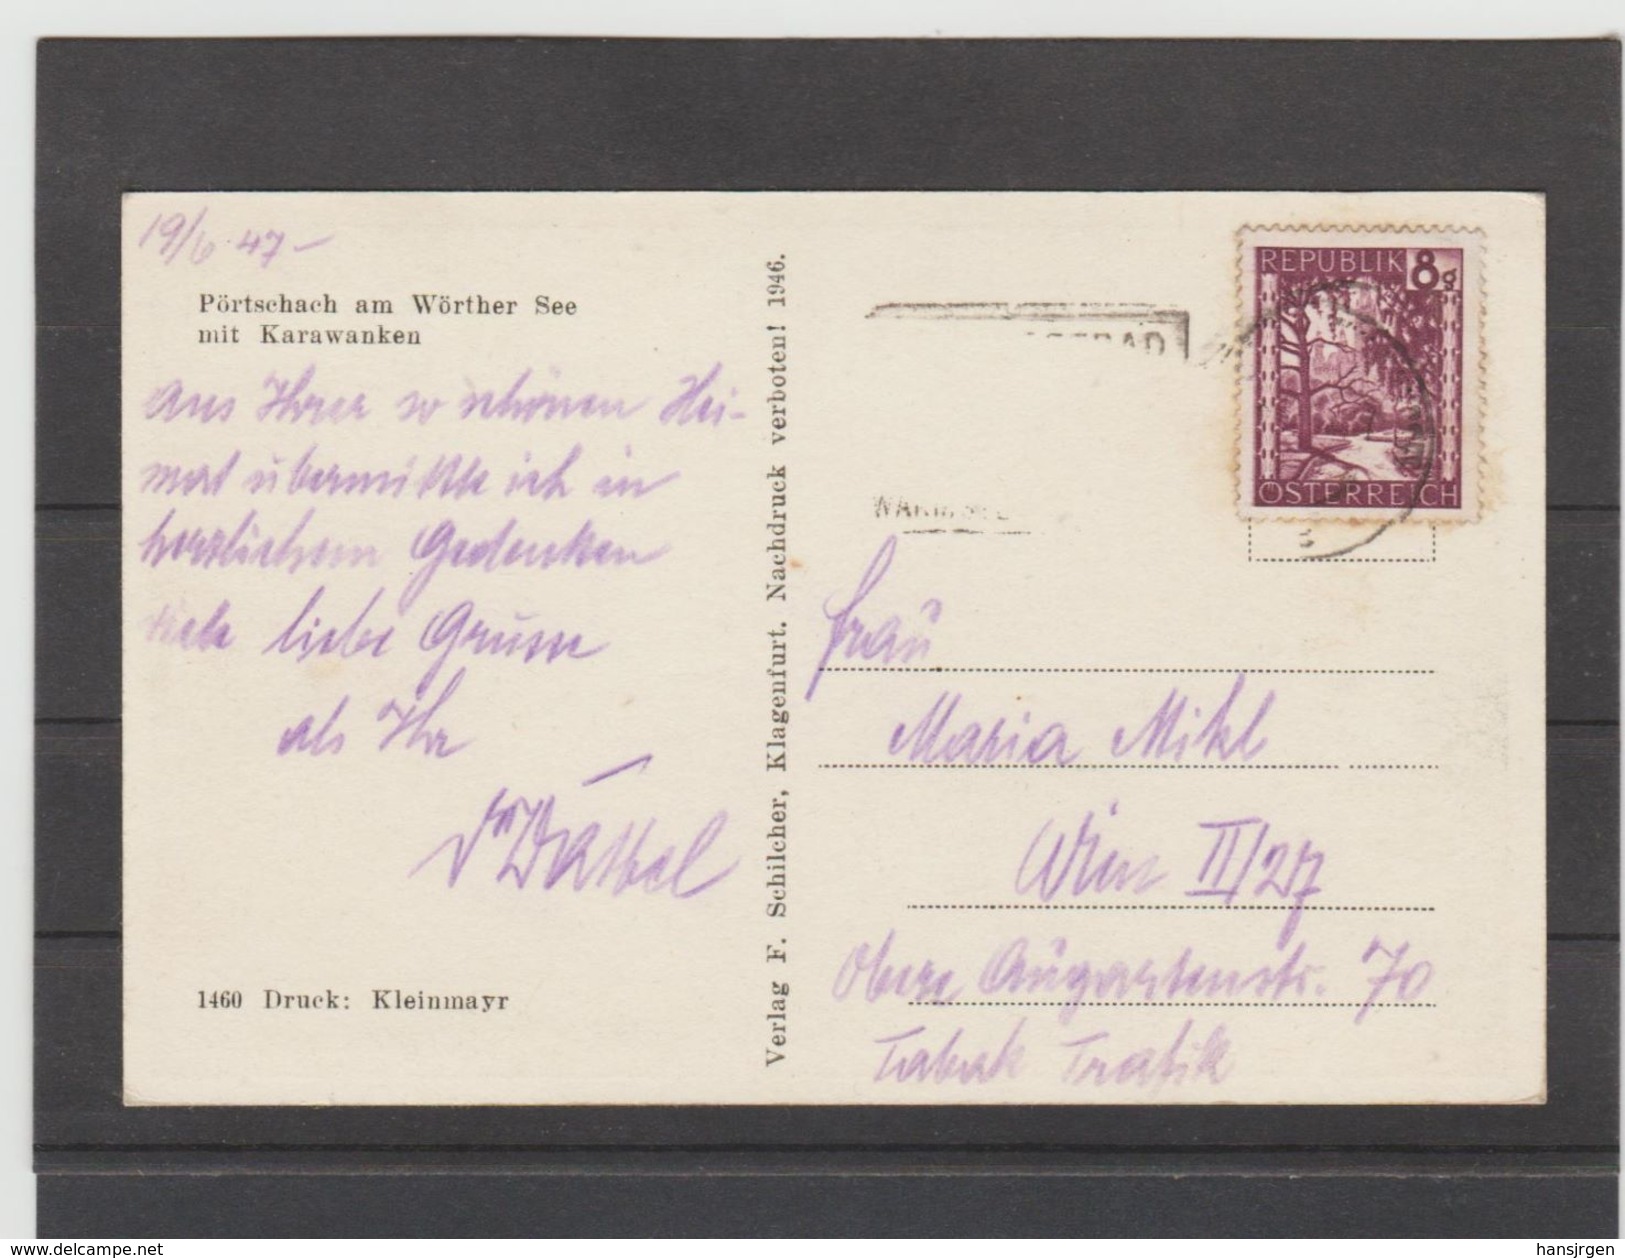 19/6 47 –
Pörtschach am Wörther See
mit Karawanken
Aus Ihrer so schönen Hei-
mat übermittle ich in
herzlichem Gedenken
viele liebe Grüsse
als Ihr
1460 Druck: Kleinmayr
Verlag F. Schilcher, Klagenfurt. Nachdruck verboten! 1946.
REPUBLIK 8g
ÖSTERREICH
Frau
Maria Mikl
Wien II/27
Obere Augartenstr. 70
Tabak Trafik
www.delcampe.net
hansjrgen